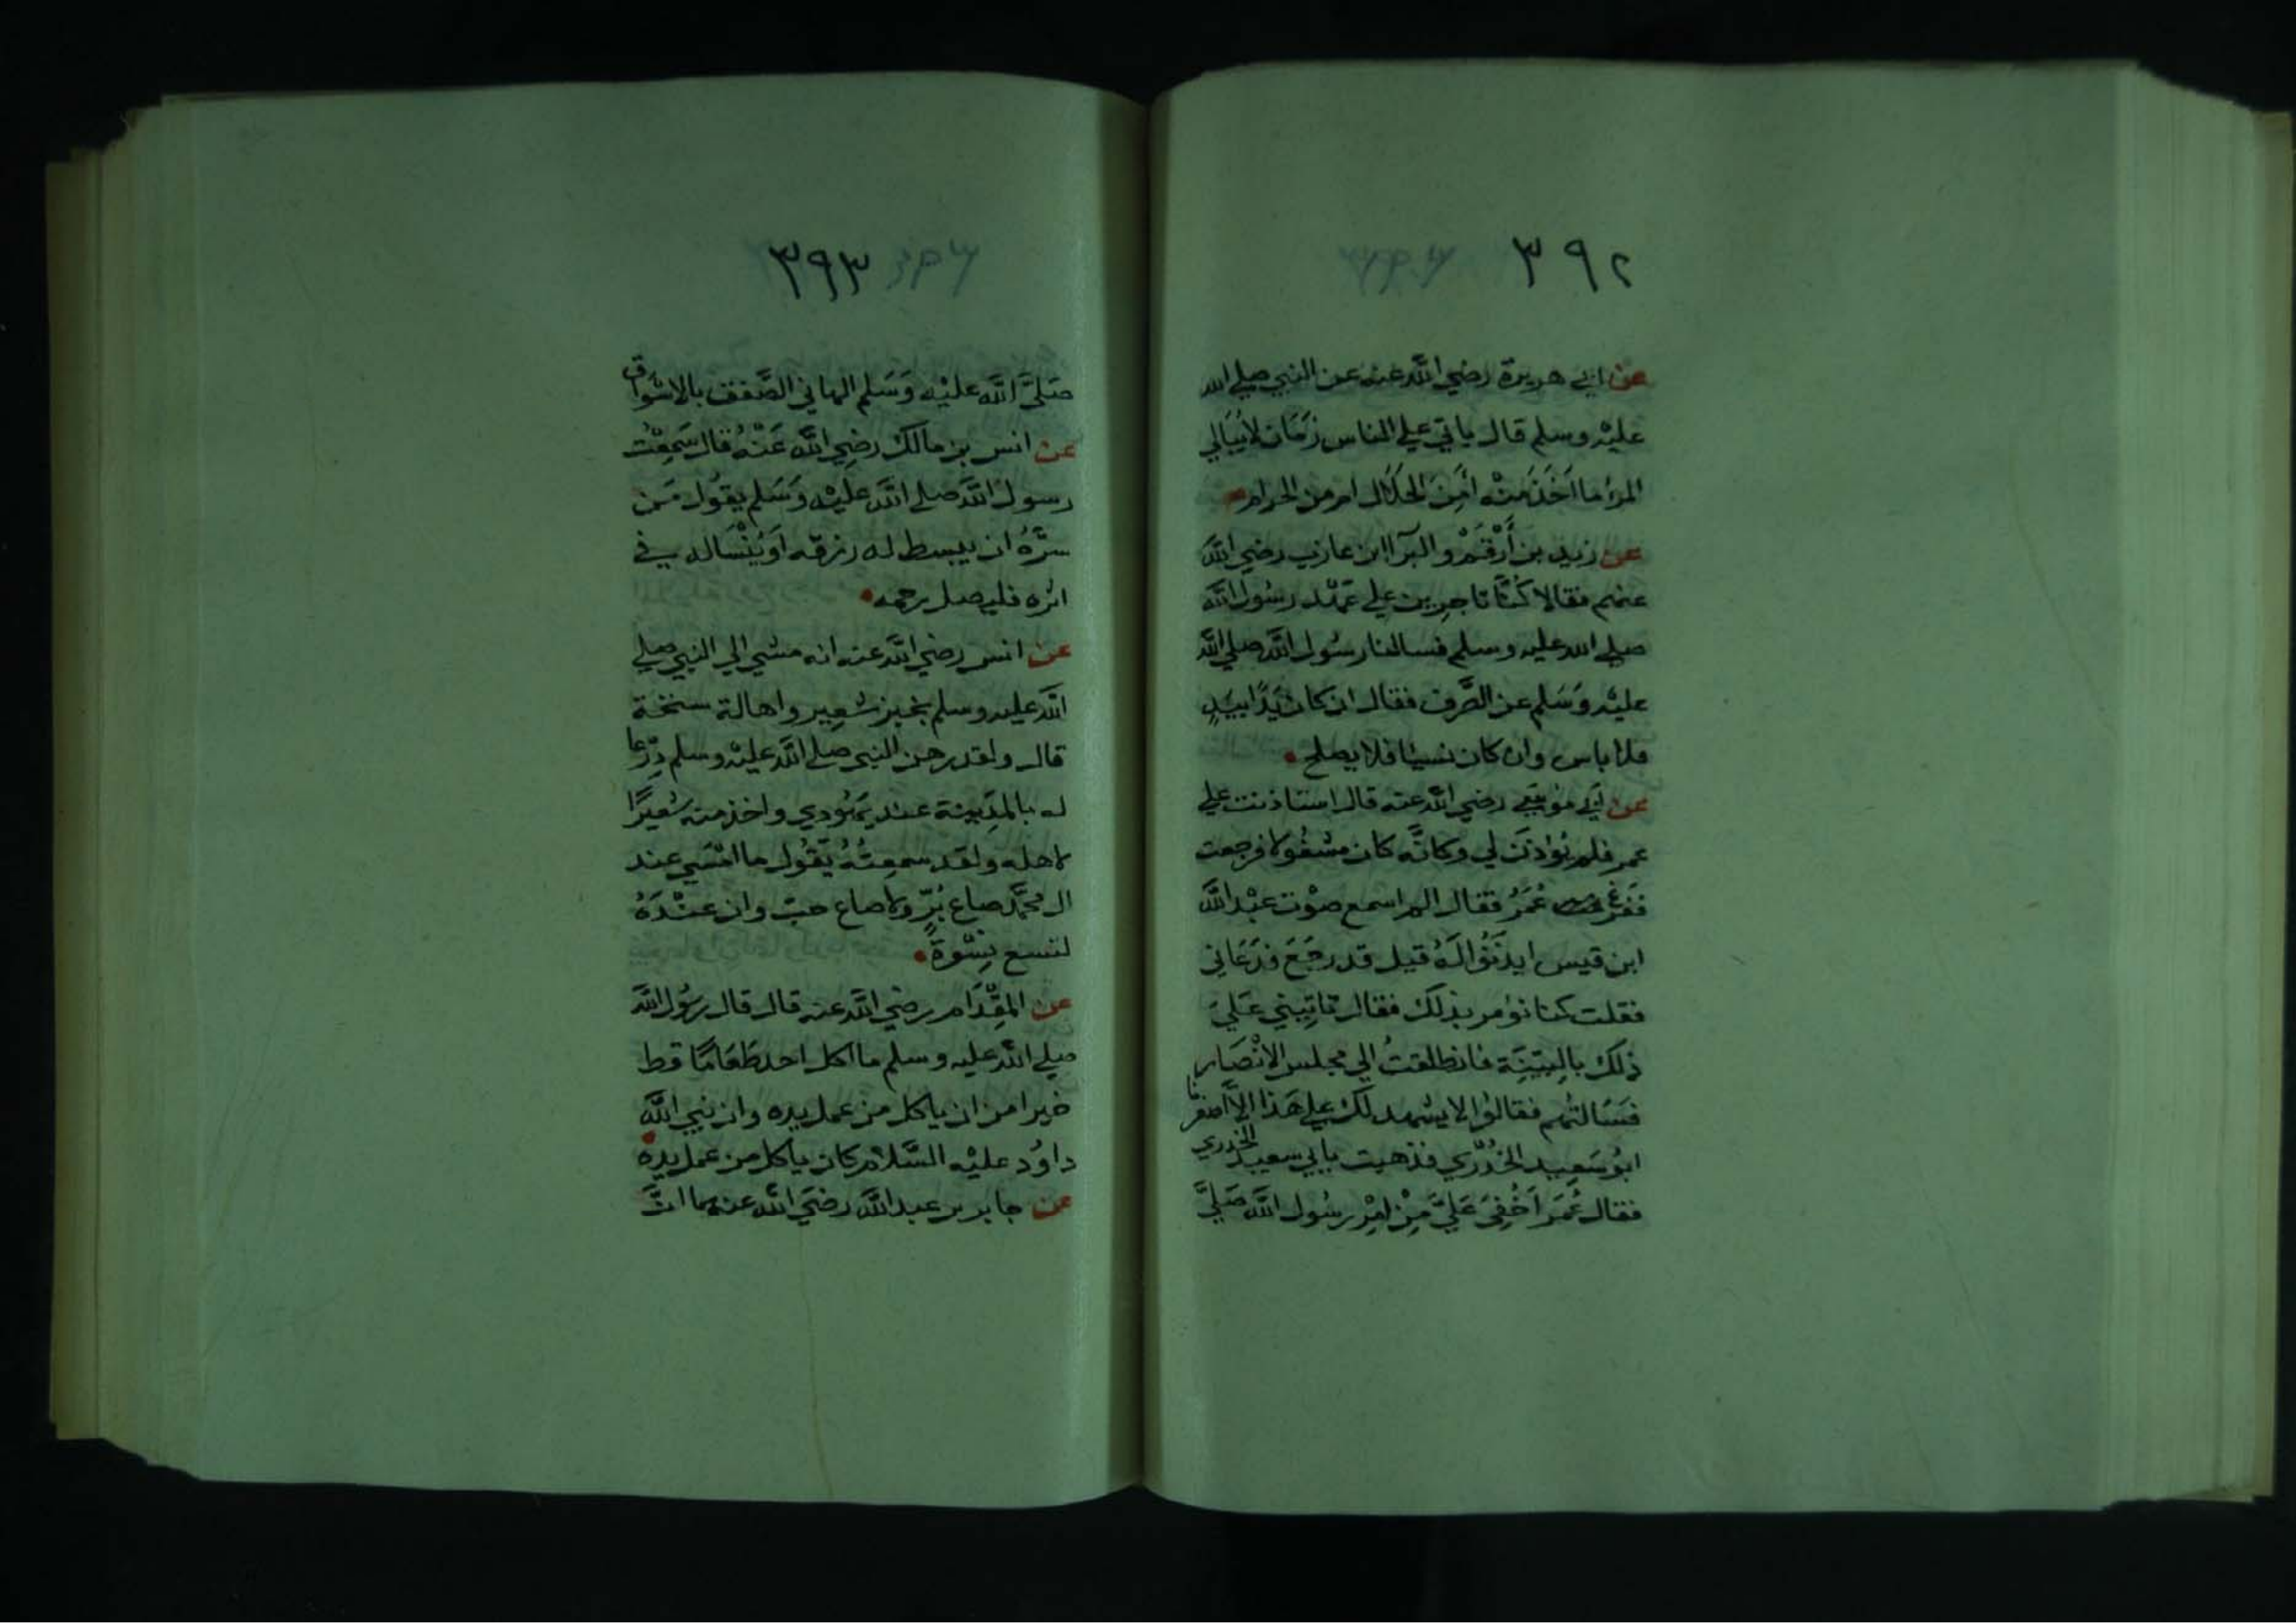 ٣٩٢
عن ابي هريرة رضي الله عنه عن النبي صلى الله
عليه وسلم قال ياتي علي الناس زَمَان لا يُبَالي
المرؤ ما اَخَذَ مِنْه أمِنَ الحَلَال ام من الحرام
عن زيد بن أَرْقَمْ والبرآ ابن عازب رضي الله
عنهم فقالا كُنَّا تاجرين علي عَهْد رسُول الله
صلي الله عليه وسلم فسالنا رسُول الله صلي الله
عليه وَسَلم عن الصَّرف فقال ان كان يَدًا بيَدٍ
فلا باس وان كان نسيا فلا يصلح
عن ابي موسي رضي الله عنه قال استاذنت علي
عمر فلم يُوذن لي وكانَّه كان مشغُولا فرجعت
ففرغ عُمَرُ فقال الم اسمع صوْت عبْد الله
ابن قيس ايذنُوا لَهُ قيل قد رجَعَ فدَعَاني
فقلت كنا نؤمر بذلك فقال تاتيني عَلي
ذلك بالبيّنَة فانطلقتُ الي مجلس الانْصَار
فسَالتُهم فقالوا لا يشهد لك علي هَذا الاَّ اصغرنا
ابوُ سَعِيد الخُدْري فذهبت بابي سعيد الخدري
فقال عُمَر اَخُفِيَ عَليَّ مِنْ امْرِ رسُول الله صَليَّ
٣٩٣
صَليَّ الله عليْه وَسَلم الهاني الصَّفق بالاسْوَاق
عن انس بن مالك رضِي الله عَنْهُ قال سَمِعْت
رسول الله صلي الله عليْه وَسَلم يقوُل مَن
سرَّهُ ان يبسط له رزقه اوَ يُنْسَا له في
اثره فليصل رحمه
عن انس رضي الله عنه انه مشي الي النبي صلي
الله عليه وسلم بخبز شعِير واهالة سنخة
قال ولقد رهن النبي صلي الله عليْه وسلم دِرْعا
له بالمدِينة عند يَهُودي واخذ منه شعيرًا
لاهله ولقد سمعِتُهُ يَقُول ما امْسَي عند
ال محمَّد صاع بُرّ ولا صاع حبّ وان عنْدَهُ
لتسع نِسْوَةَ
عن المِقْدَام رضي الله عنه قال قال رسُول الله
صلي الله عليه وسلم ما اكل احد طَعَامًا قط
خيرا من ان ياكل من عمل يده وان نبي الله
داوُد عليْه السَّلام كان ياكل من عمل يده
عن جابر بن عبد الله رضيَ الله عنهما انَّ